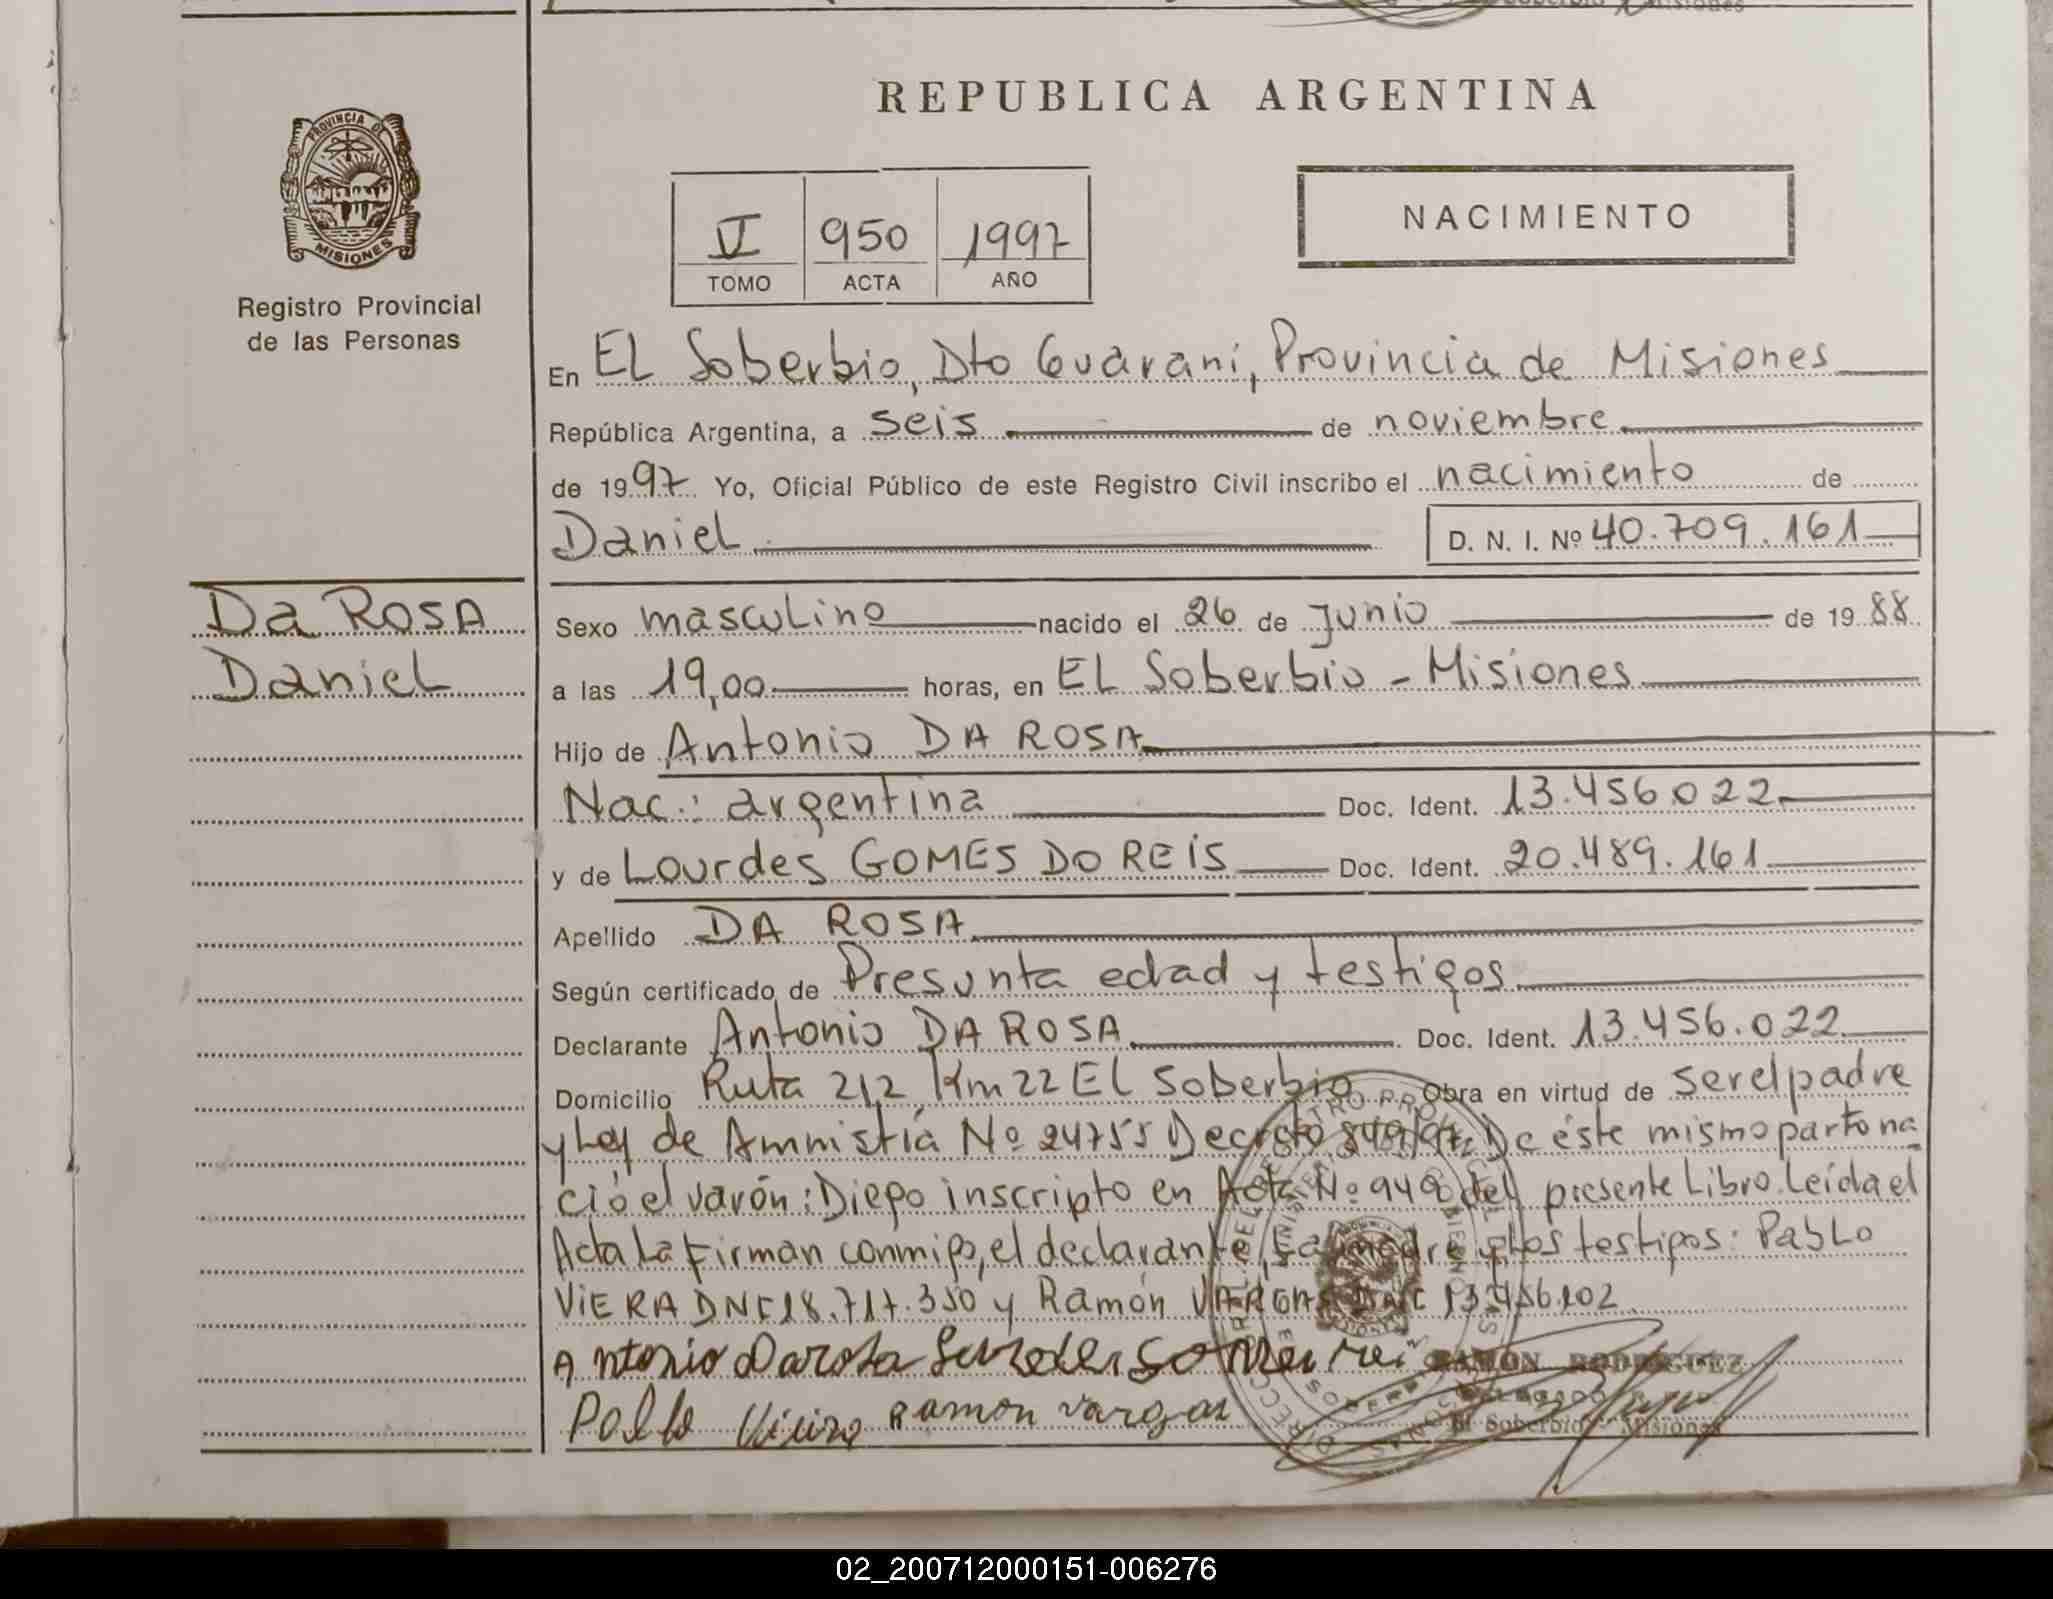 REPUBLICA ARGENTINA
PROVINCIA DE
MISIONES
Registro Provincial
de las Personas
V 950 1997
TOMO ACTA AÑO
NACIMIENTO
En EL Soberbio, Dto Guaraní, Provincia de Misiones
República Argentina, a seis de noviembre
de 1997 Yo, Oficial Público de este Registro Civil inscribo el nacimiento de
Daniel D. N. I. Nº 40.709.161
Da ROSA
Daniel
Sexo masculino nacido el 26 de Junio de 1988
a las 19,00 horas, en EL Soberbio - Misiones
Hijo de Antonio DA ROSA
Nac.: argentina Doc. Ident. 13.456.022
y de Lourdes GOMES DO REIS Doc. Ident. 20.489.161
Apellido DA ROSA
Según certificado de Presunta edad y testigos
Declarante Antonio DA ROSA Doc. Ident. 13.456.022
Domicilio Ruta 212, Km 22 El Soberbio Obra en virtud de ser el padre
y Ley de Amnistía Nº 24755 Decreto De éste mismo parto na
ció el varón: Diego inscripto en Acta Nº 949 del presente Libro. Leída el
Acta La Firman conmigo, el declarante, la madre y los testigos: Pablo
VIERA DNI 18.717.350 y Ramón VARGAS DNI 13.456.102
Antonio Darosa
Pablo Viera Ramon Vargas
RAMON RODRIGUEZ
El Soberbio - Misiones
02_200712000151-006276